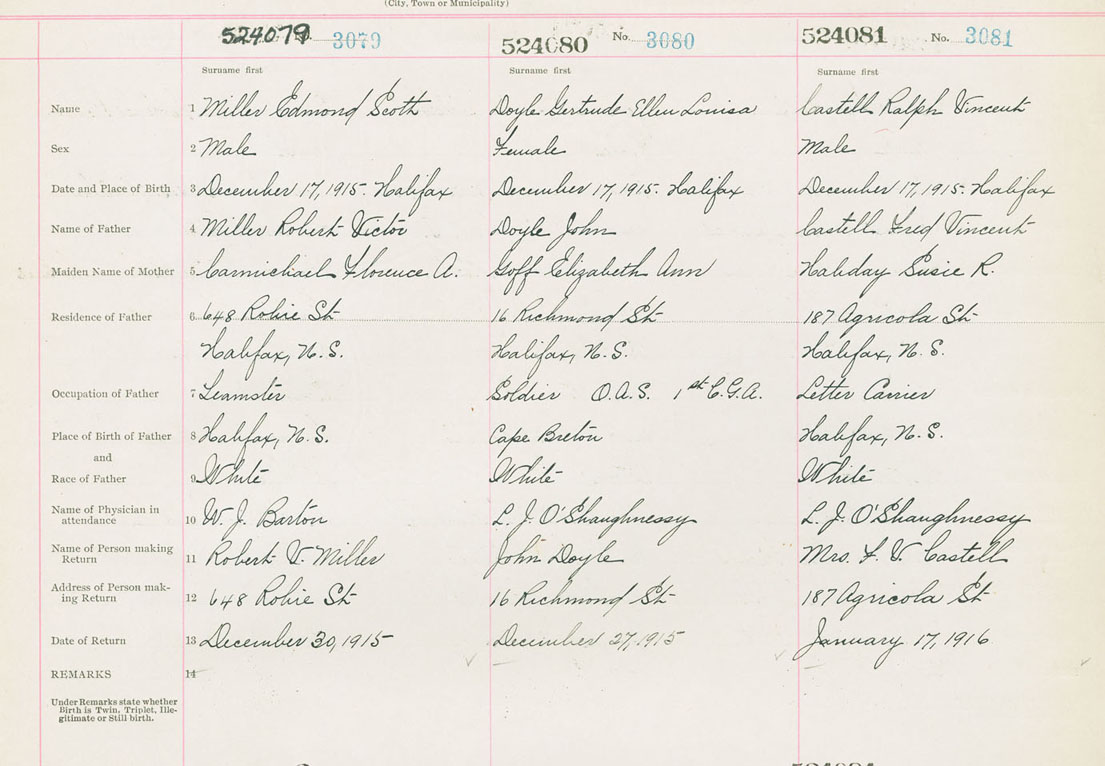 (City, Town or Municipality)
524079 No. 3079 524080 No. 3080 524081 No. 3081
Surname first Surname first Surname first
Name 1 Miller Edmond Scott Doyle Gertrude Ellen Louisa Castell Ralph Vincent
Sex 2 Male Female Male
Date and Place of Birth 3 December 17, 1915. Halifax December 17, 1915. Halifax December 17, 1915. Halifax
Name of Father 4 Miller Robert Victor Doyle John Castell Fred Vincent
Maiden Name of Mother 5 Carmichael Florence A. Goff Elizabeth Ann Haliday Susie R.
Residence of Father 6 648 Robie St 16 Richmond St 187 Agricola St
Halifax, N.S. Halifax, N.S. Halifax, N.S.
Occupation of Father 7 Teamster Soldier O.A.S. 1st C.G.A. Letter Carrier
Place of Birth of Father 8 Halifax, N.S. Cape Breton Halifax, N.S.
and
Race of Father 9 White White White
Name of Physician in
attendance 10 W. J. Barton L. J. O'Shaughnessy L. J. O'Shaughnessy
Name of Person making
Return 11 Robert V. Miller John Doyle Mrs. F. V. Castell
Address of Person mak-
ing Return 12 648 Robie St 16 Richmond St 187 Agricola St
Date of Return 13 December 30, 1915 December 27, 1915 January 17, 1916
REMARKS 14
Under Remarks state whether
Birth is Twin, Triplet, Ille-
gitimate or Still birth.